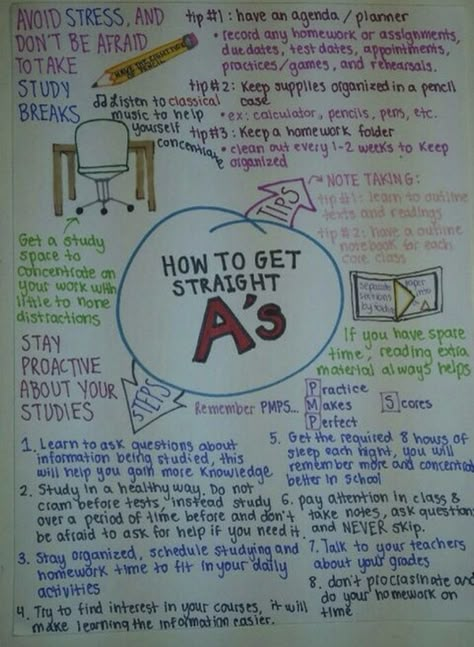 AVOID STRESS, AND
DON'T BE AFRAID
TO TAKE
STUDY
BREAKS
HAVE THE RIGHT KIND
OF PENCIL
tip #1: have an agenda / planner
• record any homework or assignments,
due dates, test dates, appointments,
practices/games, and rehearsals.
tip #2: Keep supplies organized in a pencil
case
• ex: calculator, pencils, pens, etc.
tip #3: Keep a homework folder
• clean out every 1-2 weeks to keep
organized
Listen to classical
music to help
yourself
concentrate
TIPS
NOTE TAKING:
tip #1: learn to outline
texts and readings
tip #2: have a outline
notebook for each
core class
Get a study
space to
concentrate on
your work with
little to none
distractions
HOW TO GET
STRAIGHT
A's
separate
sections
by
paper
If you have spare
time, reading extra
material always helps
STAY
PROACTIVE
ABOUT YOUR
STUDIES
STEPS
Remember PMPS...
Practice
Makes
Perfect
Scores
1. Learn to ask questions about
information being studied, this
will help you gain more knowledge
2. Study in a healthy way. Do not
cram before tests, instead study
over a period of time before and don't
be afraid to ask for help if you need it.
3. Stay organized, schedule studying and
homework time to fit in your daily
activities
4. Try to find interest in your courses, it will
make learning the information easier.
5. Get the required 8 hours of
sleep each night, you will
remember more and concentrate
better in school
6. pay attention in class &
take notes, ask questions
and NEVER skip.
7. Talk to your teachers
about your grades
8. don't proclasinate and
do your homework on
time